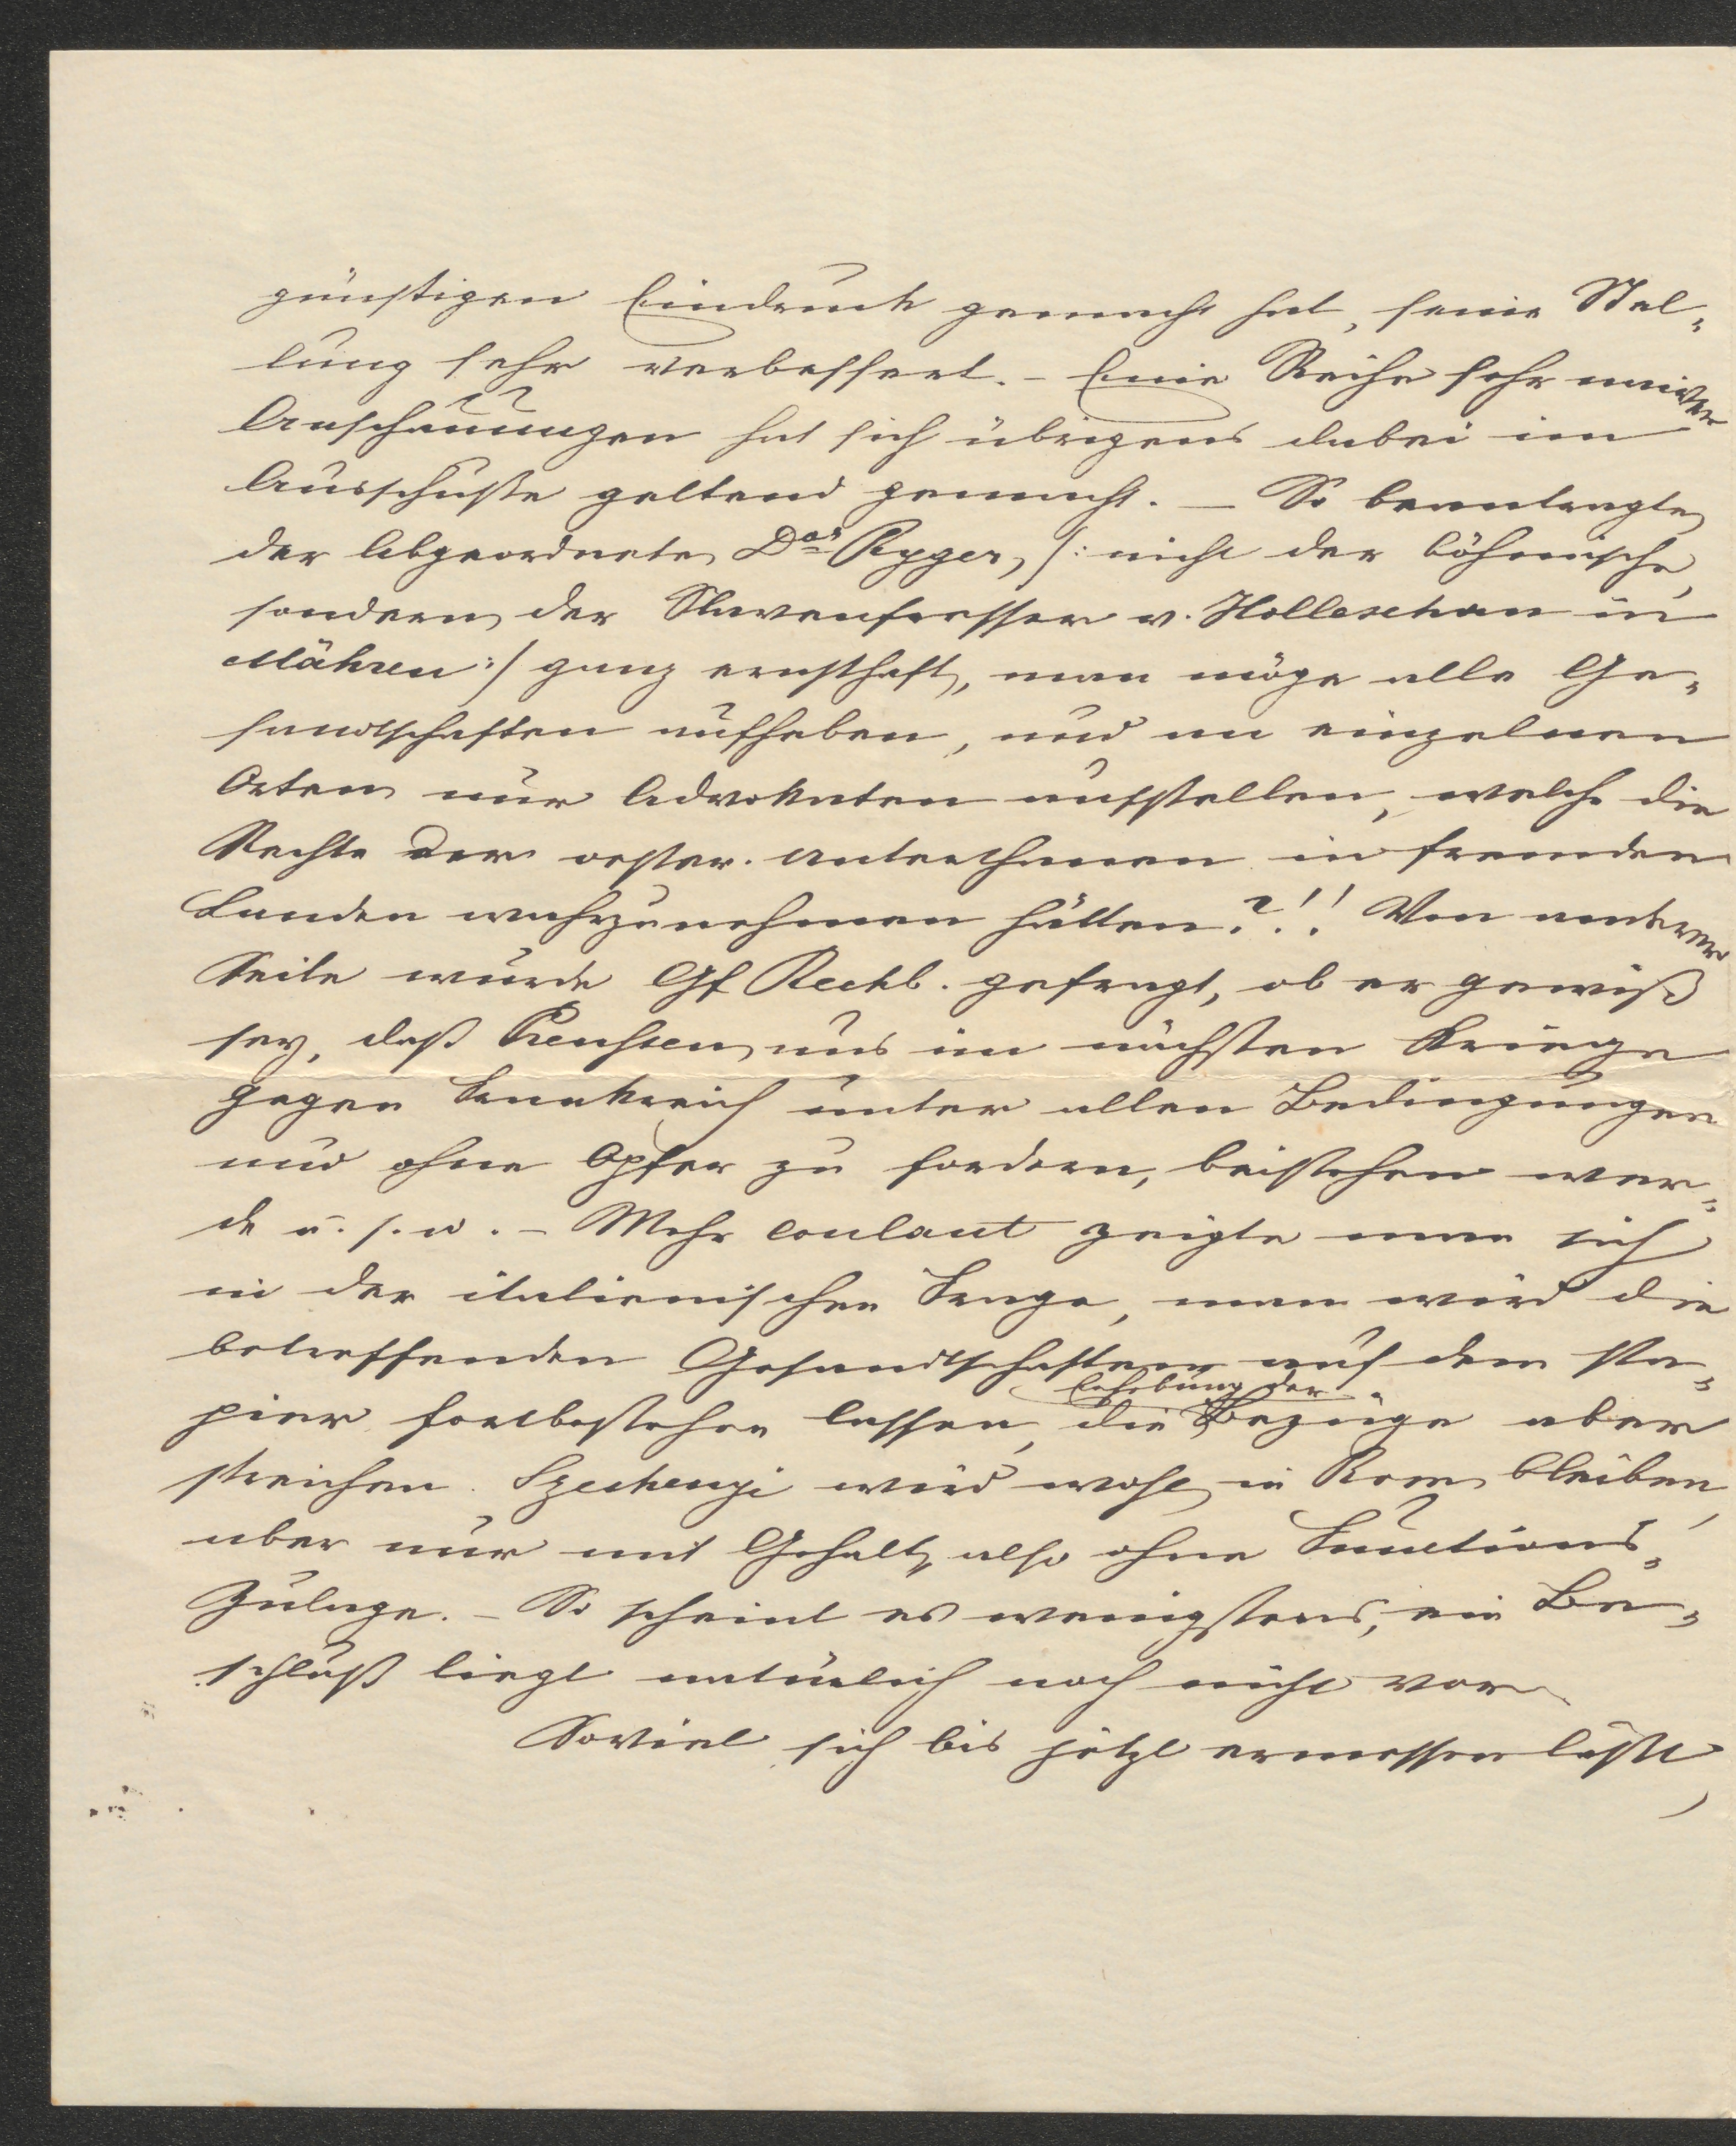 günstigen Eindruck gemacht hat, seine Stel-
lung sehr verbessert. – Eine Reihe sehr naiver
Anschauungen hat sich übrigens dabei im
Ausschuße geltend gemacht. – So beantragte
der Abgeordnete Dor Ryger, /: nicht der böhmische,
sondern der Slavenfresser v. Holleschau in
Mähren :/ ganz ernsthaft, man möge alle Ge-
sandtschaften aufheben, und an einzelnen
Orten nur Advokaten aufstellen, welche die
Rechte der oester. Unterthanen in fremden
Landen wahrzunehmen hätten?!! Von anderer
Seite wurde Gf Rechb. gefragt, ob er gewiß
sey, daß Preußen uns im nächsten Kriege
gegen Frankreich unter allen Bedingungen
und ohne Opfer zu fordern, beistehen wer-
de u. s. w. – Mehr coulant zeigte man sich
in der italienischen Frage, man wird die
betreffenden Gesandtschaften auf dem Pa-
pier fortbestehen lassen, die Erhebung der Bezüge aber
streichen. Szechenyi wird wohl in Rom bleiben,
aber nur mit Gehalt, also ohne Functions-
Zulage. – So scheint es wenigstens, ein Be-
schluß liegt natürlich noch nicht vor
Soviel sich bis jetzt ermessen läßt,